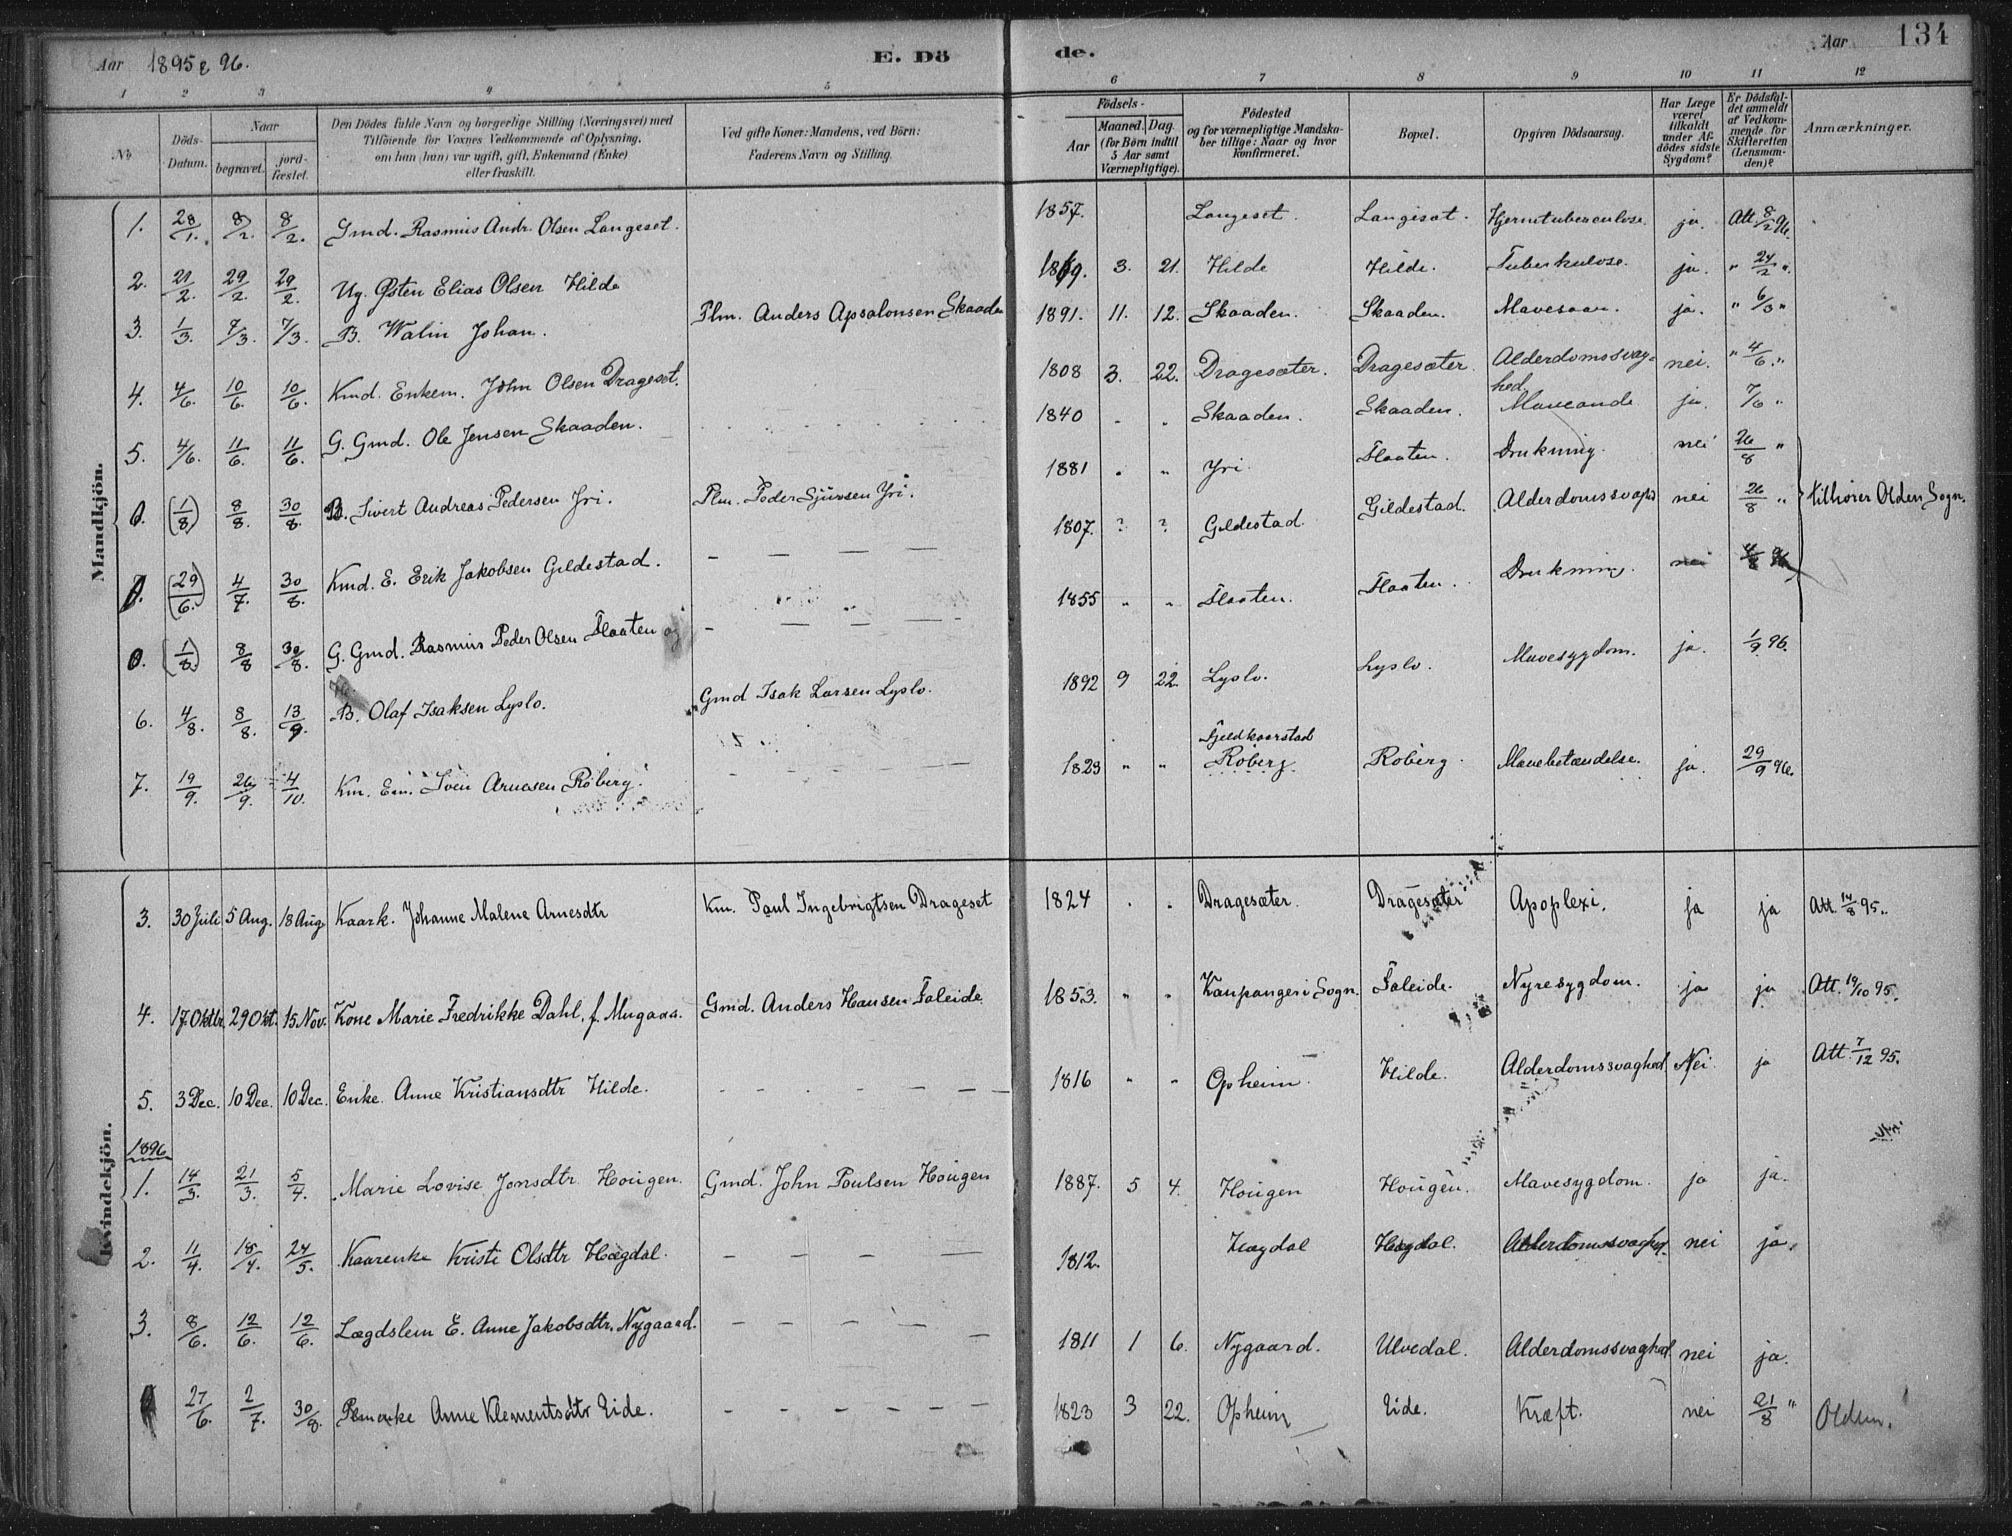 Aar 1895 & 96. E. Dö de. Aar 134
1 2 3 4 5 6 7 8 9 10 11 12
No Döds-Datum. Naar begravet. jordfæstet. Den Dödes fulde Navn og borgerlige Stilling (Næringsvei) med Tilföiende for Voxnes Vedkommende af Oplysning, om han (hun) var ugift, gift, Enkemand (Enke) eller fraskilt. Ved gifte Koner: Mandens, ved Börn: Faderens Navn og Stilling. Födsels- Aar Maaned. Dag. (for Börn indtil 5 Aar samt Værnepligtige). Födested og for værnepligtige Mandskaber tillige: Naar og hvor konfirmeret. Bopæl. Opgiven Dödsaarsag. Har Læge været tilkaldt under Afdödes sidste Sygdom? Er Dödsfaldet anmeldt af Vedkommende for Skifteretten (Lensmanden)? Anmærkninger.
Mandkjön.
1. 28/1. 8/2. 8/2. Gmd. Rasmus Andr. Olsen Langeset. 1857. Langeset. Langeset. Hjernetuberculose. ja. Att. 8/2 96.
2. 21/2. 29/2. 29/2. Ug. Østen Elias Olsen Hilde 1869. 3. 21. Hilde Hilde. Tuberkulose. ja. " 24/2 ".
3. 1/3. 7/3. 7/3. B. Walin Johan. Plm. Anders Apsalonsen Skaaden 1891. 11. 12. Skaaden. Skaaden. Mavesaar. ja. " 6/3 "
4. 4/6. 10/6. 10/6. Kmd. Enkem. John Olsen Drageset. 1808 3. 22. Dragesæter. Dragesæter. Alderdomssvaghed. nei. " 4/6. "
5. 4/6. 11/6. 11/6. G. Gmd. Ole Jensen Skaaden. 1840 " " Skaaden. Skaaden. ja. 7/6 "
0. (1/8) 8/8. 30/8. B. Sivert Andreas Pedersen Yri. Plm. Peder Sjursen Yri. 1881 " " Yri. Flaaten. Drukning. nei 26/8 "
0. (29/6.) 4/7. 30/8. Kmd. E. Erik Jakobsen Gildestad. — — — — 1807. ? ? Gildestad. Gildestad. Alderdomssvaghd nei 26/8 " tilhører Olden Sogn.
0. (1/8.) 8/8 30/8. G. Gmd. Rasmus Peder Olsen Flaaten — — — — 1855 " " Flaaten. Flaaten. Drukning. nei
6. 4/8. 8/8. 13/9. B. Olaf Isaksen Lyslo. Gmd Isak Larsen Lyslo. 1892 9 22. Lyslo. Lyslo. Mavesygdom. ja. 1/9. 96.
7. 19/9. 26/9. 4/10. Km. Em. Sven Arnesen Røberg. — — — — — 1823 " " Fjeldkaarstad Røberg. Røberg. Mavebetændelse. ja. 29/9 96.
Kvindekjön.
3. 30 Juli 5 Aug. 18 Aug. Kaark. Johanne Malene Arnesdtr Km. Paul Ingebrigtsen Drageset 1824 " " Dragesæter. Dragesæter Apoplexi. ja ja Att. 14/8 95.
4. 17. Oktbr. 29 Okt. 15. Nov. Kone Marie Fredrikke Dahl, f. Mugaas. Gmd. Anders Hansen Faleide. 1853. " " Kaupanger i Sogn. Faleide. Nyresygdom. ja ja Att. 19/10 95.
5. 3 Dec. 10 Dec. 10 Dec. Enke Anne Kristiansdtr Hilde. — — — — — 1816 " " Opheim. Hilde. Alderdomssvaghed Nei. ja Att. 7/12 95.
1896
1. 14/3. 21/3. 5/4. Marie Lovise Jonsdtr Hougen. Gmd. John Paulsen Hougen 1887. 5 4. Hougen Hougen. Mavesygdom. ja ja.
2. 11/4. 18/4. 24/5. Kaarenke Kristi Olsdtr Hægdal. — — — — — 1812. Hægdal Hægdal. Alderdomssvaghed. nei ja.
3. 8/6. 12/6. 12/6. Lægdslem E. Anne Jakobsdtr. Nygaard. — — — — — 1811 1 6. Nygaard. Ulvedal. Alderdomssvaghed nei ja.
27/6. 2/7. 30/8. Plmenke Anne Klementsdtr Eide. — — — — — — 1823 3 22. Opheim Eide. Kræft. nei 21/8 " Olden.